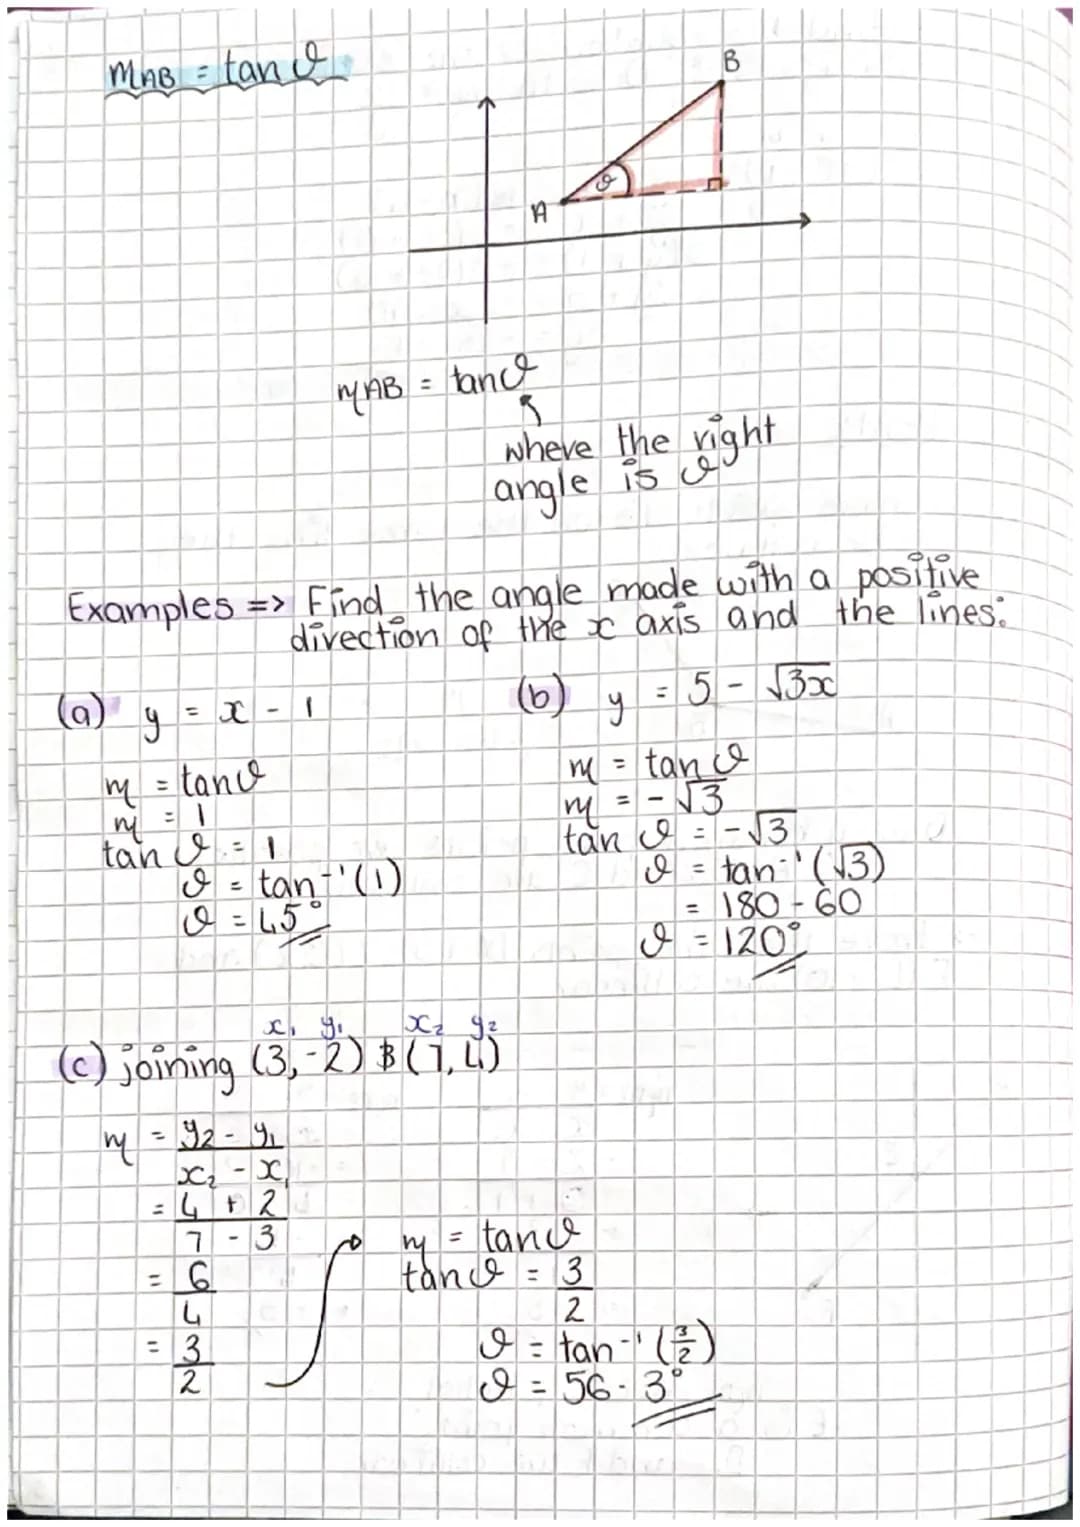 mAB = tan θ
B
θ
A
mAB = tanθ
where the right
angle is θ
Examples => Find the angle made with a positive
direction of the x axis and the lines:
(a) y = x - 1
m = tanθ
m = 1
tan θ = 1
θ = tan⁻¹(1)
θ = 45°
(b) y = 5 - √3x
m = tan θ
m = -√3
tan θ = -√3
θ = tan⁻¹(√3)
= 180 - 60
θ = 120°
x₁ y₁ x₂ y₂
(c) joining (3, -2) & (7, 4)
m = y₂ - y₁
x₂ - x₁
= 4 + 2
7 - 3
= 6
4
= 3
2
m = tanθ
tanθ = 3
2
θ = tan⁻¹(3/2)
θ = 56.3°